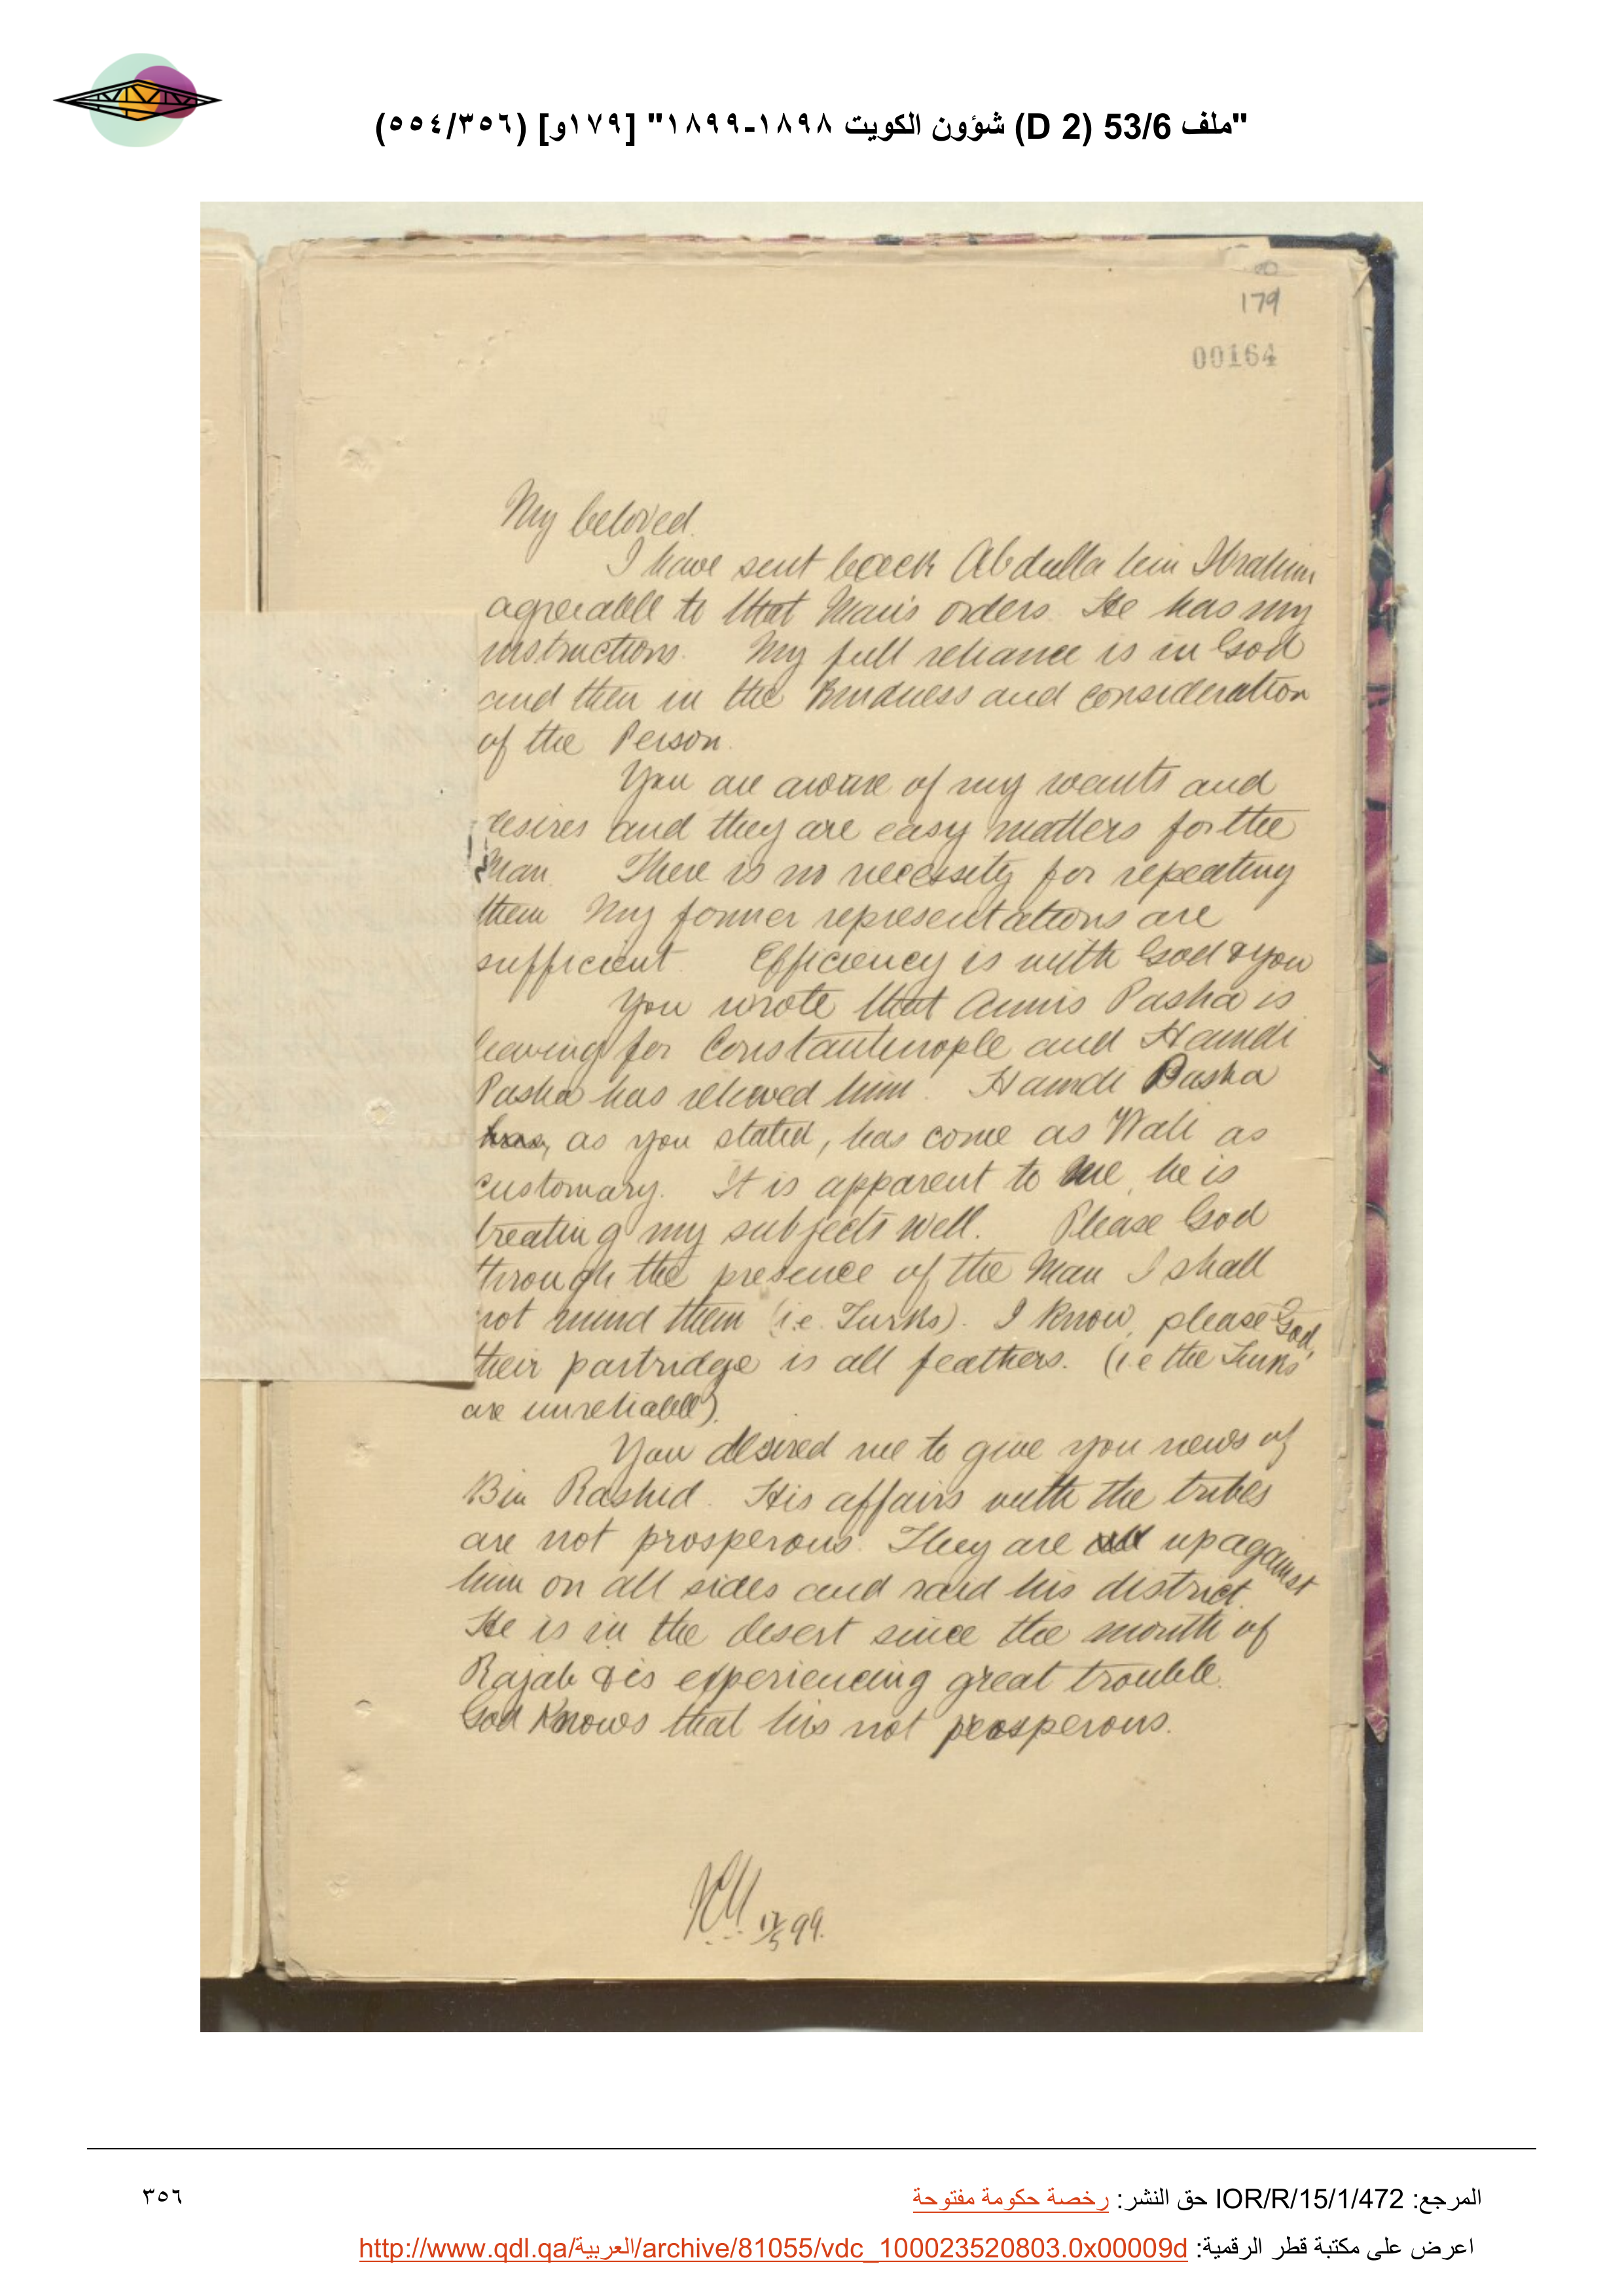 "ملف 53/6 (D 2) شؤون الكويت ١٨٩٨-١٨٩٩" [١٧٩و] (٥٥٤/٣٥٦)
179
00164
My beloved.
I have sent back Abdulla bin Ibrahim
agreeable to that Man's orders. He has my
instructions. My full reliance is in God
and then in the Kindness and consideration
of the Person.
You are aware of my wants and
desires and they are easy matters for the
Man. There is no necessity for repeating
them My former representations are
sufficient. Efficiency is with God & you
You wrote that Annis Pasha is
leaving for Constantinople and Hamdi
Pasha has relieved him. Hamdi Pasha
has, as you stated, has come as Wali as
customary. It is apparent to me, he is
treating my subjects well. Please God
through the presence of the Man I shall
not mind them (i.e. Turks). I know, please God,
their partridge is all feathers. (i.e the Turks
are unreliable).
You desired me to give you news of
Bin Rashid. His affairs with the tribes
are not prosperous. They are all up against
him on all sides and raid his district.
He is in the desert since the month of
Rajab & is experiencing great trouble.
God Knows that his not prosperous.
17/5 99.
المرجع: IOR/R/15/1/472 حق النشر: رخصة حكومة مفتوحة
٣٥٦
اعرض على مكتبة قطر الرقمية: http://www.qdl.qa/العربية/archive/81055/vdc_100023520803.0x00009d